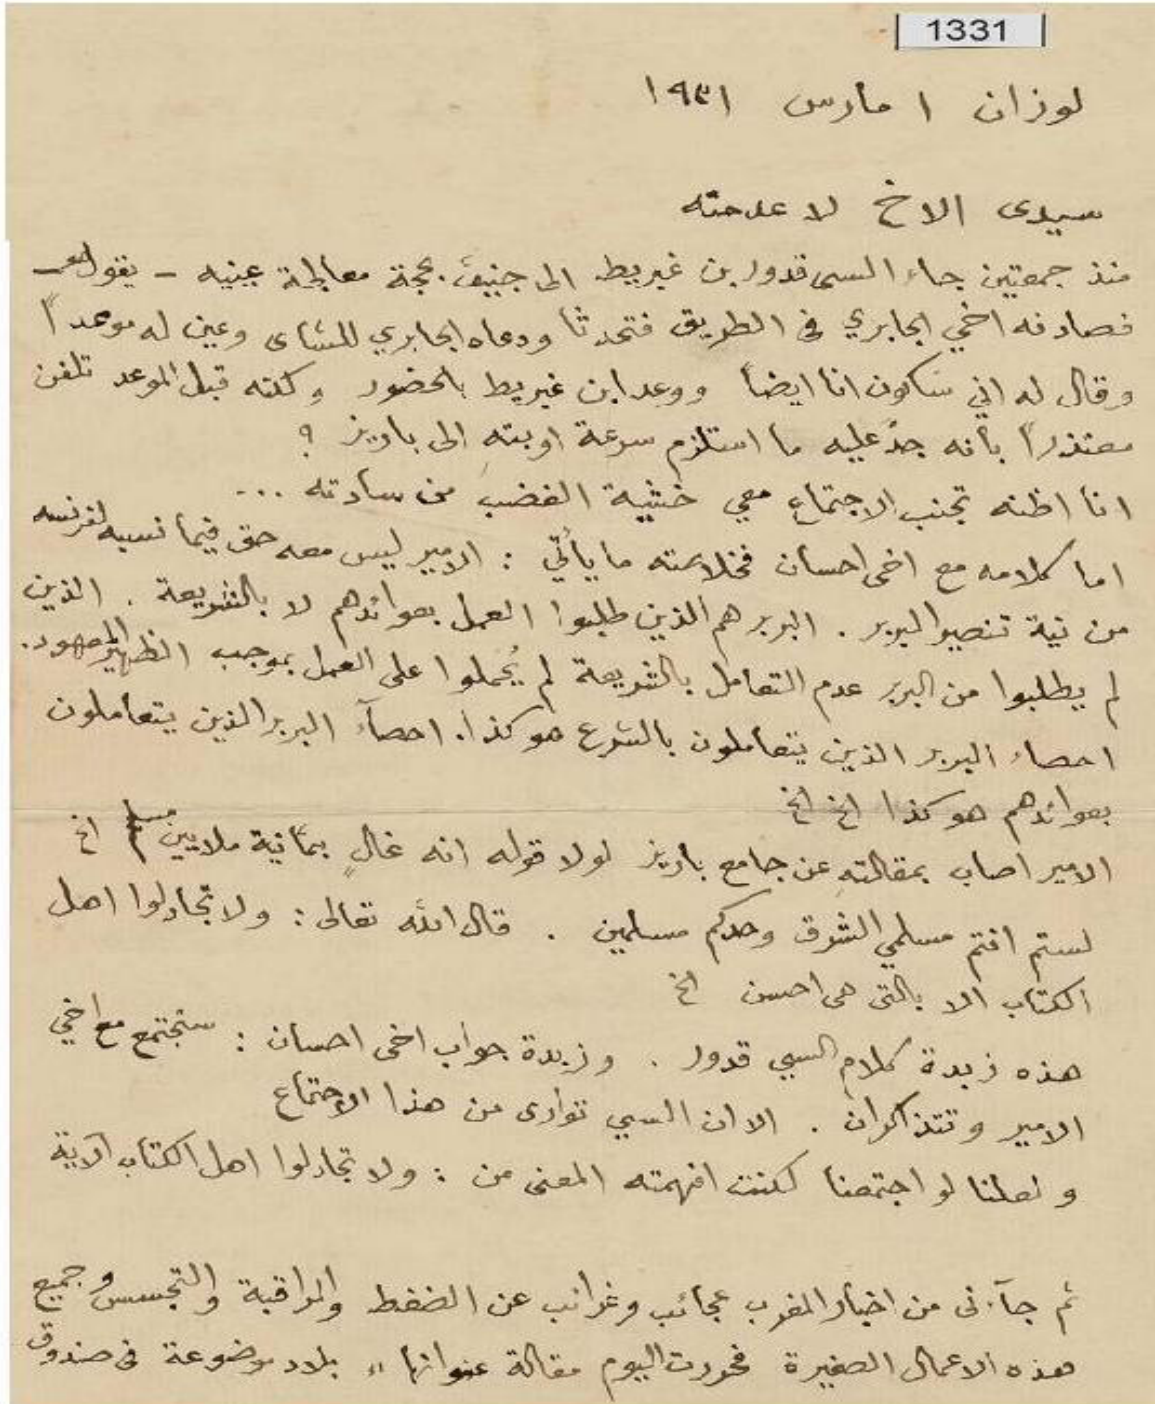 1331
لوزان ١ مارس ١٩٣١
سيدى الاخ لا عدمته
منذ جمعتين جاء السى قدور بن غبريط الى جنيف بحجة معالجة عينيه - يقول -
فصادفه اخي الجابري فى الطريق فتحدثا ودعاه الجابري للشاى وعين له موعداً
وقال له اني سأكون انا ايضاً ووعد ابن غبريط بالحضور ولكنه قبل الموعد تلفن
معتذراً بأنه جدّ عليه ما استلزم سرعة اوبتهِ الى باريز ؟
انا اظنه تجنب الاجتماع معي خشية الغضب من سادته ...
اما كلامه مع اخى احسان فخلاصته ما يأتي : الامير ليس معه حق فيما نسبه لفرنسه
من نية تنصير البربر . البربر هم الذين طلبوا العمل بعوائدهم لا بالشريعة . الذين
لم يطلبوا من البربر عدم التعامل بالشريعة لم يُحملوا على العمل بموجب الظهير المعهود.
احصاء البربر الذين يتعاملون بالشرع هو كذا . احصآء البربر الذين يتعاملون
بعوائدهم هو كذا الخ الخ
الامير اصاب بمقالتهِ عن جامع باريز لولا قوله انه غالٍ بثمانية ملايين الخ
لستم انتم مسلمي الشرق وحدكم مسلمين . قال الله تعالى : ولا تجادلوا اهل
الكتاب الا بالتى هى احسن الخ
هذه زبدة كلام السي قدور . وزبدة جواب اخى احسان : ستجتمع مع اخي
الامير وتتذاكران . الا ان السي توارى من هذا الاجتماع
ولعلنا لو اجتمعنا لكنت افهمته المعنى من : ولا تجادلوا اهل الكتاب الآية
ثم جآءنى من اخبار المغرب عجائب وغرائب عن الضغط والمراقبة والتجسس وجميع
هذه الاعمال الصغيرة فحررت اليوم مقالة عنوانها " بلاد موضوعة فى صندوق